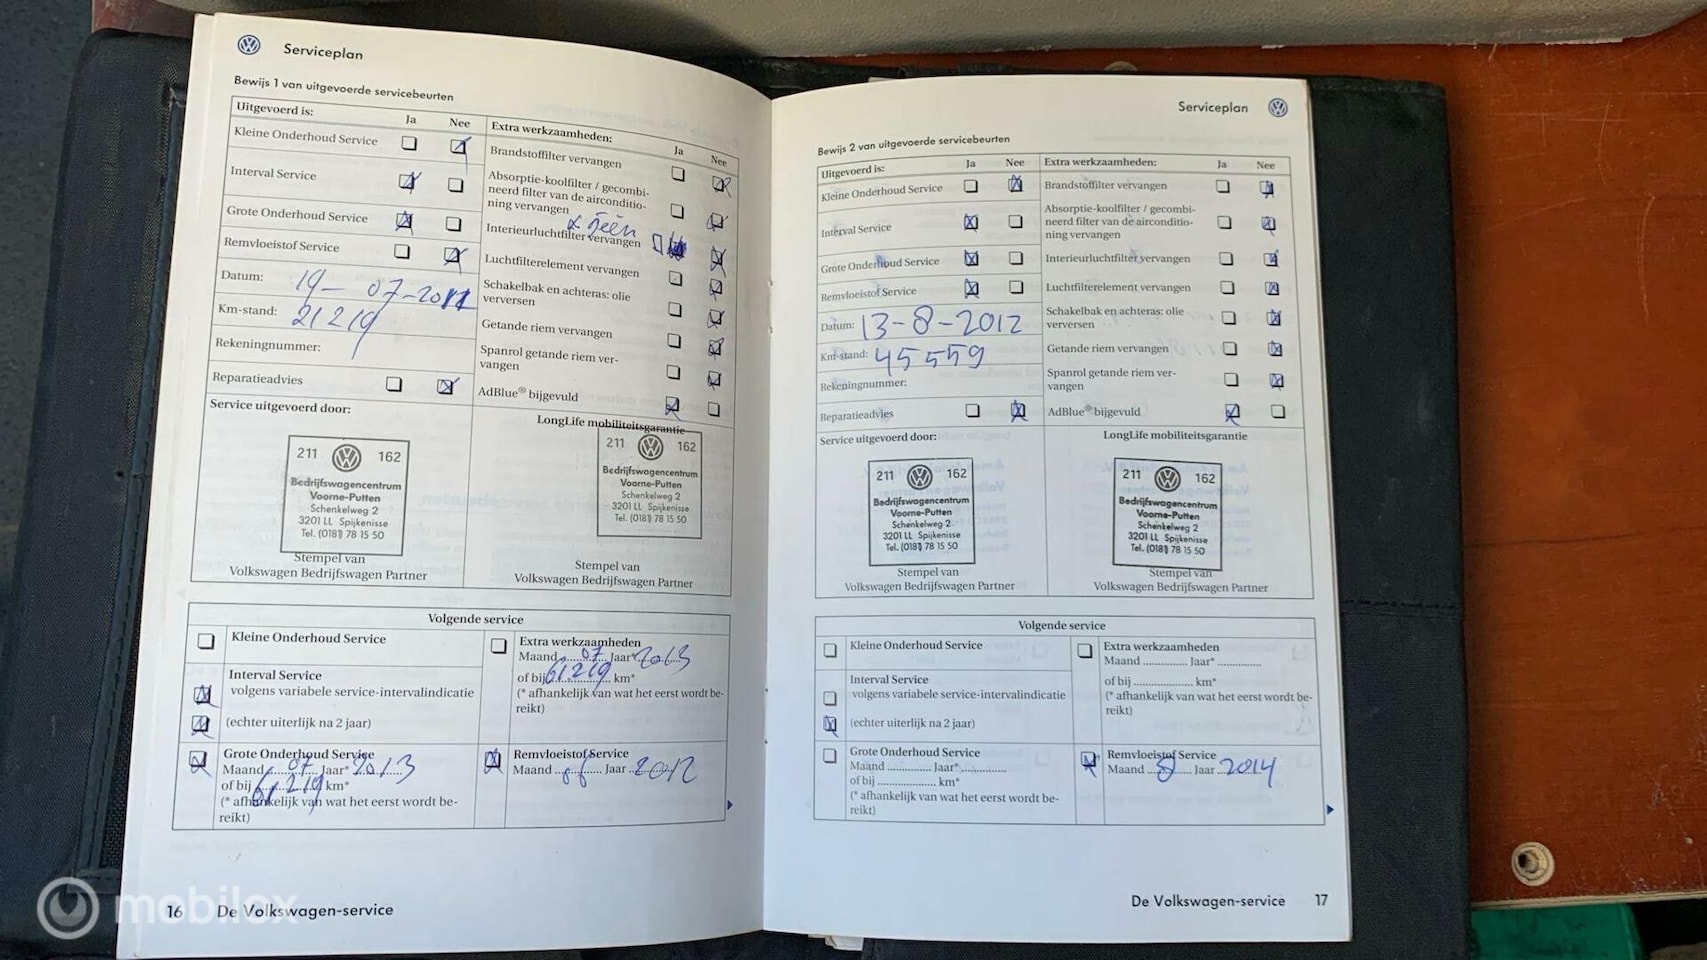 Serviceplan
Bewijs 1 van uitgevoerde servicebeurten
Uitgevoerd is:
Ja
Nee
Kleine Onderhoud Service
Interval Service
Grote Onderhoud Service
Remvloeistof Service
Datum: 19-07-2011
Km-stand: 21219
Rekeningnummer:
Reparatieadvies
Extra werkzaamheden:
Ja
Nee
Brandstoffilter vervangen
Absorptie-koolfilter / gecombi-
neerd filter van de airconditio-
ning vervangen
géén
Interieurluchtfilter vervangen
Luchtfilterelement vervangen
Schakelbak en achteras: olie
verversen
Getande riem vervangen
Spanrol getande riem ver-
vangen
AdBlue® bijgevuld
Service uitgevoerd door:
211 162
Bedrijfswagencentrum
Voorne-Putten
Schenkelweg 2
3201 LL Spijkenisse
Tel. (0181) 78 15 50
Stempel van
Volkswagen Bedrijfswagen Partner
LongLife mobiliteitsgarantie
211 162
Bedrijfswagencentrum
Voorne-Putten
Schenkelweg 2
3201 LL Spijkenisse
Tel. (0181) 78 15 50
Stempel van
Volkswagen Bedrijfswagen Partner
Volgende service
Kleine Onderhoud Service
Interval Service
volgens variabele service-intervalindicatie
(echter uiterlijk na 2 jaar)
Grote Onderhoud Service
Maand 07 Jaar* 2013
of bij 61219 km*
(* afhankelijk van wat het eerst wordt be-
reikt)
Extra werkzaamheden
Maand 07 Jaar* 2013
of bij 61219 km*
(* afhankelijk van wat het eerst wordt be-
reikt)
Remvloeistof Service
Maand Jaar 2012
16 De Volkswagen-service
Serviceplan
Bewijs 2 van uitgevoerde servicebeurten
Uitgevoerd is:
Ja
Nee
Kleine Onderhoud Service
Interval Service
Grote Onderhoud Service
Remvloeistof Service
Datum: 13-8-2012
Km-stand: 45559
Rekeningnummer:
Reparatieadvies
Extra werkzaamheden:
Ja
Nee
Brandstoffilter vervangen
Absorptie-koolfilter / gecombi-
neerd filter van de airconditio-
ning vervangen
Interieurluchtfilter vervangen
Luchtfilterelement vervangen
Schakelbak en achteras: olie
verversen
Getande riem vervangen
Spanrol getande riem ver-
vangen
AdBlue® bijgevuld
Service uitgevoerd door:
211 162
Bedrijfswagencentrum
Voorne-Putten
Schenkelweg 2
3201 LL Spijkenisse
Tel. (0181) 78 15 50
Stempel van
Volkswagen Bedrijfswagen Partner
LongLife mobiliteitsgarantie
211 162
Bedrijfswagencentrum
Voorne-Putten
Schenkelweg 2
3201 LL Spijkenisse
Tel. (0181) 78 15 50
Stempel van
Volkswagen Bedrijfswagen Partner
Volgende service
Kleine Onderhoud Service
Interval Service
volgens variabele service-intervalindicatie
(echter uiterlijk na 2 jaar)
Grote Onderhoud Service
Maand .............. Jaar* ..............
of bij .................... km*
(* afhankelijk van wat het eerst wordt be-
reikt)
Extra werkzaamheden
Maand .............. Jaar* ..............
of bij .................... km*
(* afhankelijk van wat het eerst wordt be-
reikt)
Remvloeistof Service
Maand 8 Jaar 2014
De Volkswagen-service 17
mobilox